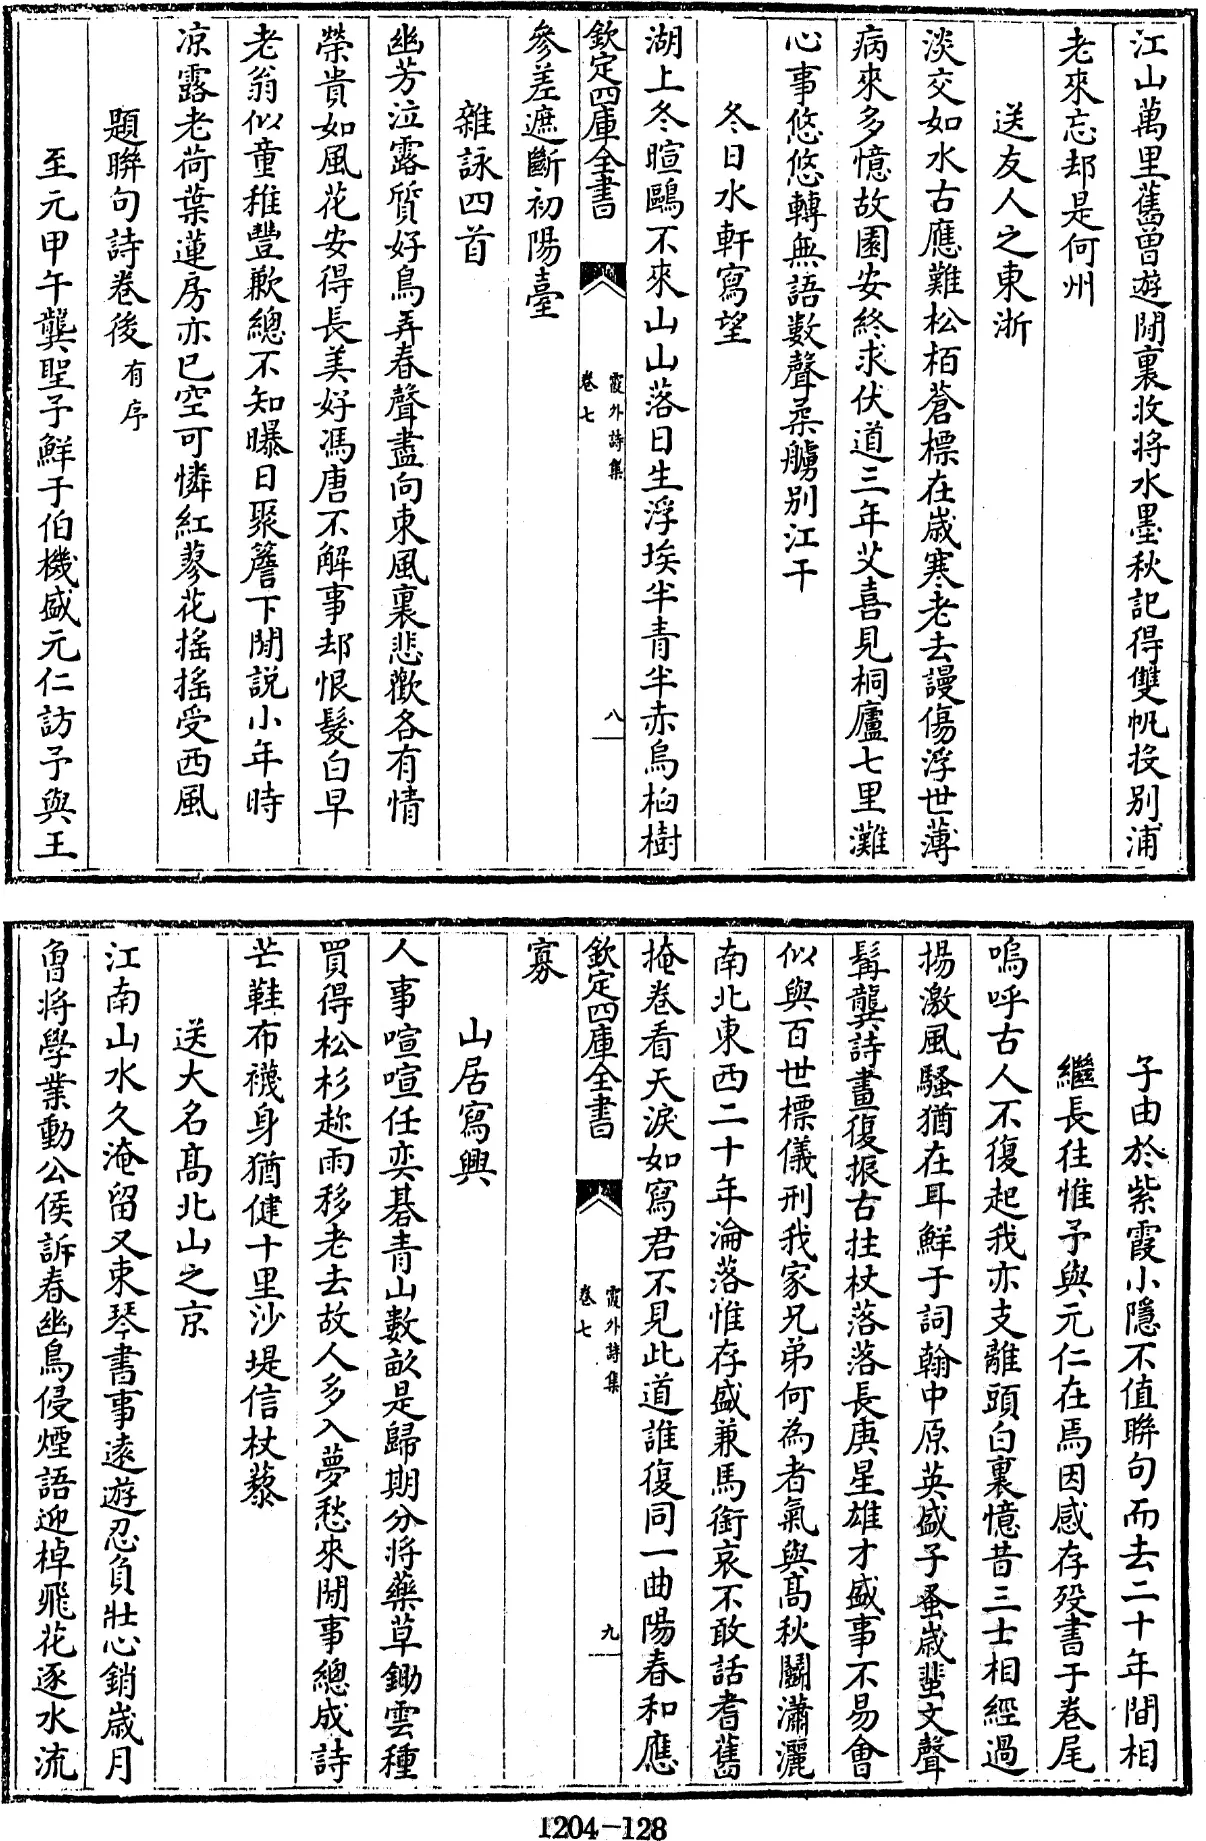 江山萬里舊曾遊閒裏收將水墨秋記得雙帆投别浦
老來忘却是何州
送友人之東浙
淡交如水古應難松栢蒼標在歲寒老去謾傷浮世薄
病來多憶故園安終求伏道三年艾喜見桐廬七里灘
心事悠悠轉無語數聲柔艣别江干
冬日水軒寫望
湖上冬暄鷗不來山山落日生浮埃半青半赤烏桕樹
欽定四庫全書
霞外詩集
卷七
八
參差遮斷初陽臺
雜詠四首
幽芳泣露質好鳥弄春聲盡向東風裏悲歡各有情
榮貴如風花安得長美好馮唐不解事却恨髮白早
老翁似童稚豐歉總不知曝日聚簷下閒説小年時
凉露老荷葉蓮房亦已空可憐紅蓼花摇摇受西風
題聯句詩卷後有序
至元甲午龔聖予鮮于伯機盛元仁訪予與王
子由於紫霞小隱不值聯句而去二十年間相
繼長往惟予與元仁在焉因感存殁書于卷尾
嗚呼古人不復起我亦支離頭白裏憶昔三士相經過
揚激風騷猶在耳鮮于詞翰中原英盛子蚤歲蜚文聲
髯龔詩畫復振古拄杖落落長庚星雄才盛事不易會
似與百世標儀刑我家兄弟何為者氣與髙秋鬬瀟灑
南北東西二十年淪落惟存盛兼馬銜哀不敢話耆舊
掩卷看天淚如寫君不見此道誰復同一曲陽春和應
欽定四庫全書
霞外詩集
卷七
九
寡
山居寫興
人事喧喧任奕棊青山數畝是歸期分將藥草鋤雲種
買得松杉趂雨移老去故人多入夢愁來閒事總成詩
芒鞋布襪身猶健十里沙堤信杖藜
送大名髙北山之京
江南山水久淹留又束琴書事逺遊忍負壯心銷歲月
曾將學業動公侯訴春幽鳥侵煙語迎棹飛花逐水流
1204-128